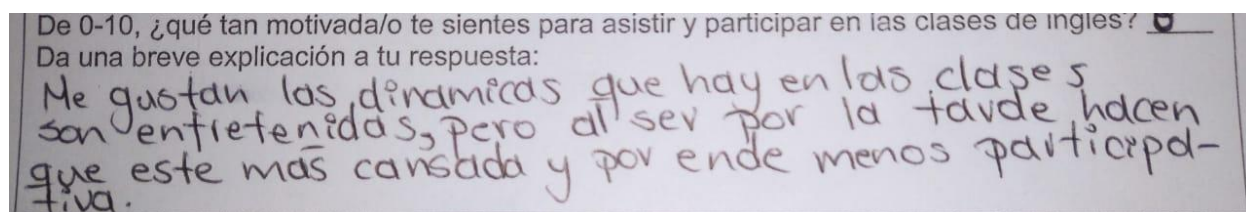 De 0-10, ¿qué tan motivada/o te sientes para asistir y participar en las clases de inglés?
Da una breve explicación a tu respuesta:
Me gustan las dinamicas que hay en las clases
son entretenidas, pero al ser por la tarde hacen
que este mas cansada y por ende menos participa-
tiva.